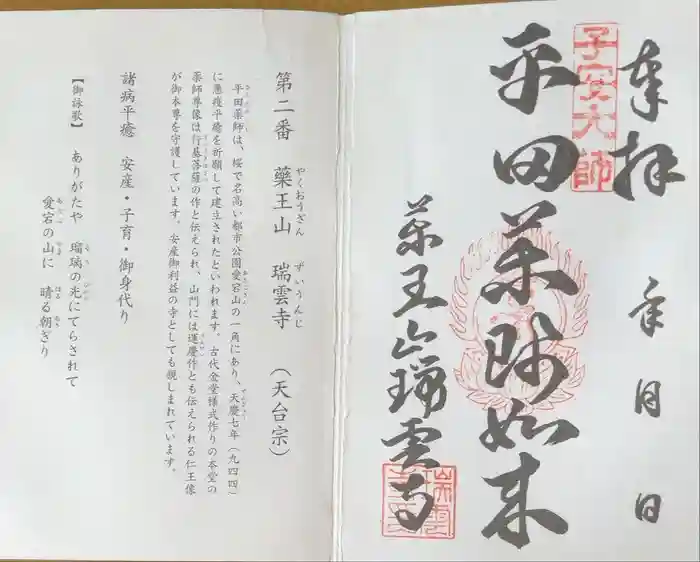 奉拝
年月日
子安大師
平田薬師如来
薬王山瑞雲寺
第二番　藥王山　瑞雲寺　（天台宗）
やくおうざん　ずいうんじ
平田薬師は、桜で名高い都市公園愛宕山の一角にあり、天慶七年（九四四）
に悪疫平癒を祈願して建立されたといわれます。古代金堂様式作りの本堂の
薬師尊像は行基菩薩の作と伝えられ、山門には運慶作とも伝えられる仁王像
が御本尊を守護しています。安産御利益の寺としても親しまれています。
諸病平癒　安産・子育・御身代り
【御詠歌】　ありがたや　瑠璃の光にてらされて
愛宕の山に　晴る朝ぎり